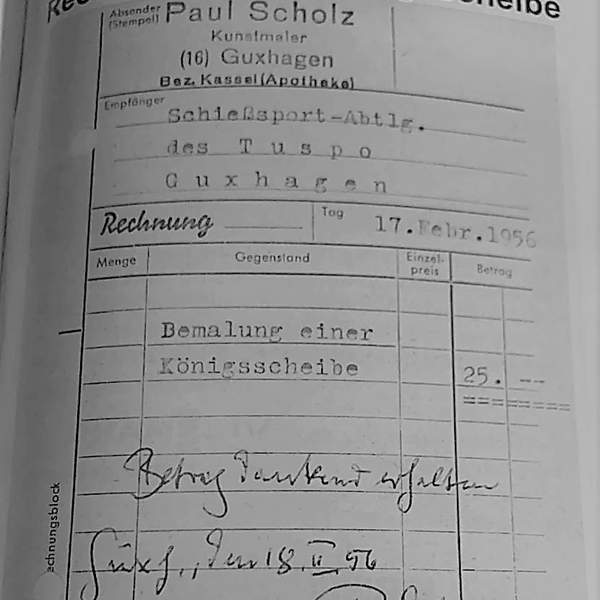 Absender Paul Scholz
(Stempel) Kunstmaler
(16) Guxhagen
Bez. Kassel (Apotheke)
Empfänger
Schießsport-Abtlg.
des Tuspo
Guxhagen
Rechnung Tag 17.Febr.1956
Menge Gegenstand Einzel-preis Betrag
Bemalung einer
Königsscheibe 25. --
Betrag dankend erhalten
Guxh., den 18. II. 56